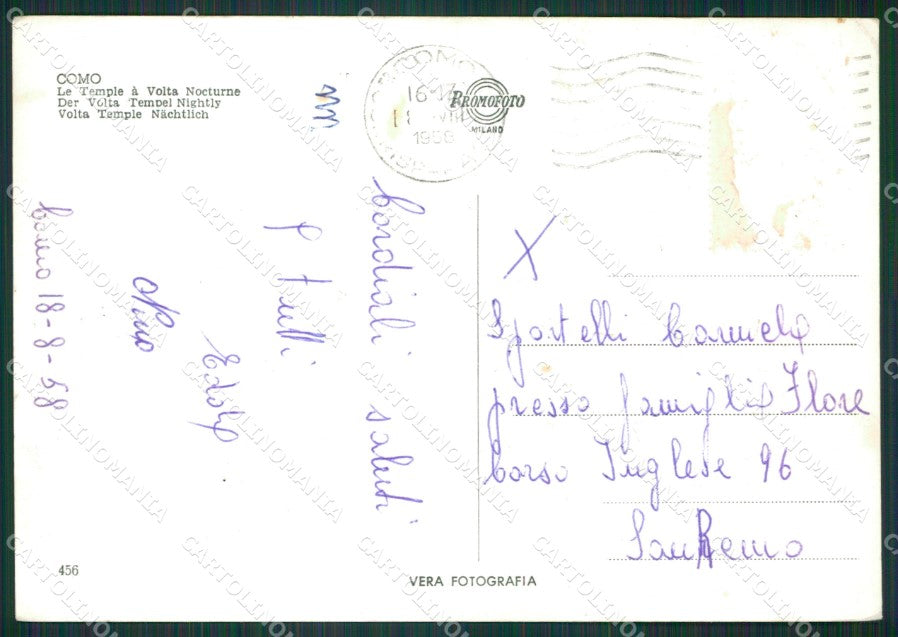 COMO
Le Temple à Volta Nocturne
Der Volta Tempel Nightly
Volta Temple Nächtlich
COMO
16-17
18 VIII
1958
PROMOFOTO
MILANO
Como 18-8-58
Cordiali saluti
a tutti
Edola
Nino
X
Sportelli Carmela
presso famiglia Flore
Corso Inglese 96
San Remo
456
VERA FOTOGRAFIA
CARTOLINOMANIA